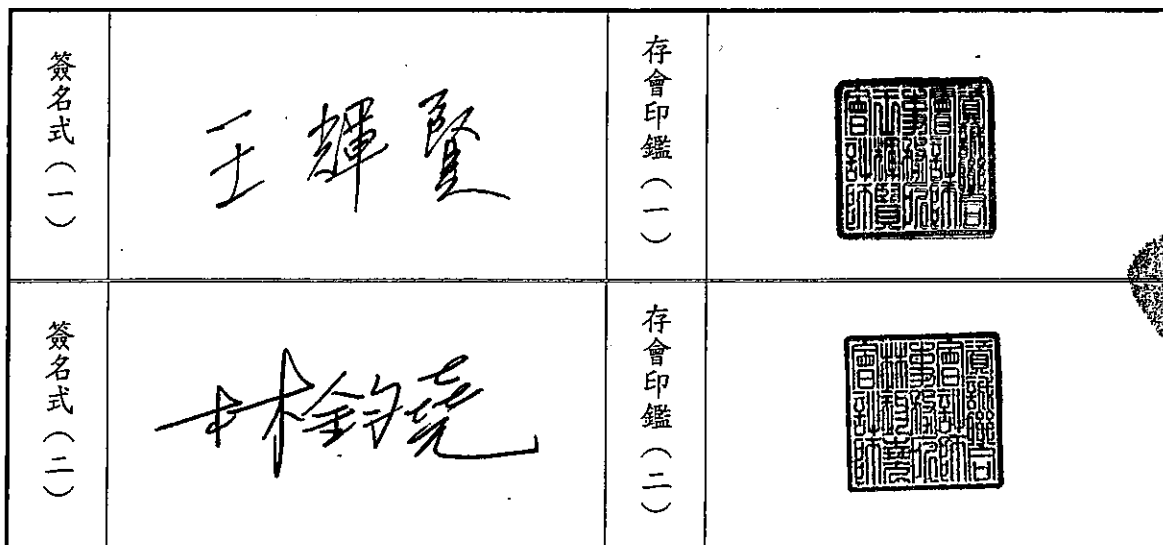 簽名式（一）
王輝賢
存會印鑑（一）
資誠聯合
會計師
事務所
王輝賢
會計師
簽名式（二）
林鈞堯
存會印鑑（二）
資誠聯合
會計師
事務所
林鈞堯
會計師